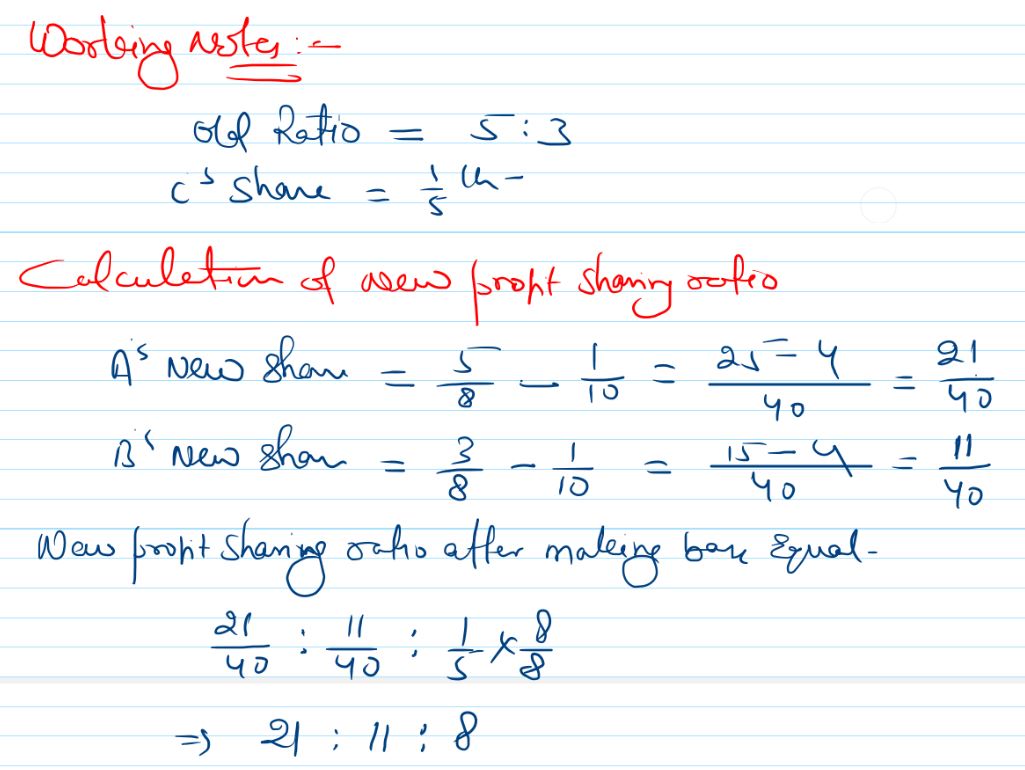 Working Notes :-
Old Ratio = 5 : 3
C's Share = 1/5 th -
Calculation of new profit sharing ratio
A's New Share = 5/8 - 1/10 = (25 - 4)/40 = 21/40
B's New Share = 3/8 - 1/10 = (15 - 4)/40 = 11/40
New profit sharing ratio after making base Equal -
21/40 : 11/40 : 1/5 × 8/8
⇒ 21 : 11 : 8